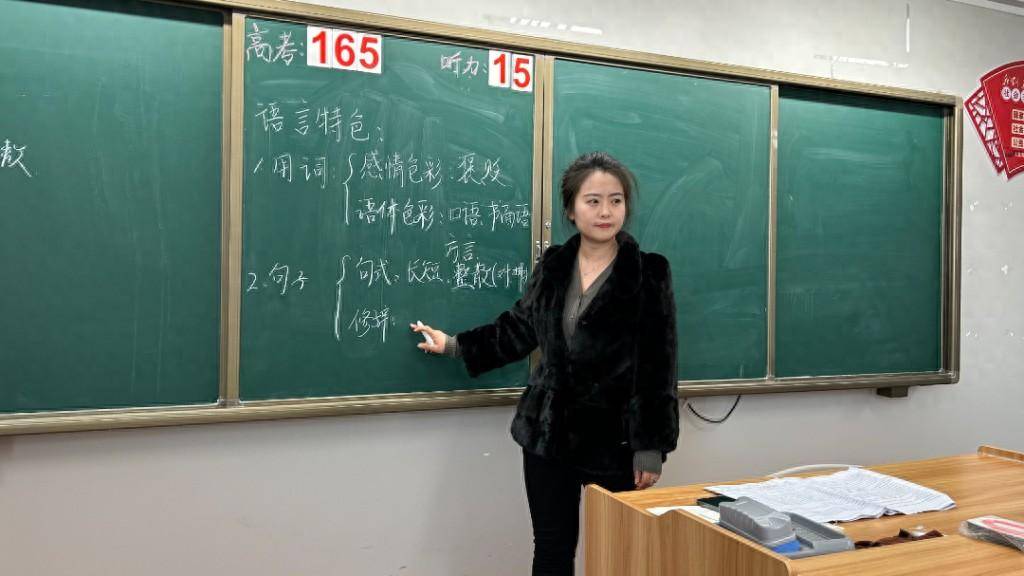 高考:165
听力:15
语言特色:
散
1.用词:
感情色彩:褒贬
语体色彩:口语、书面语
方言
2、句子
句式:长短、整散(对偶
修辞: